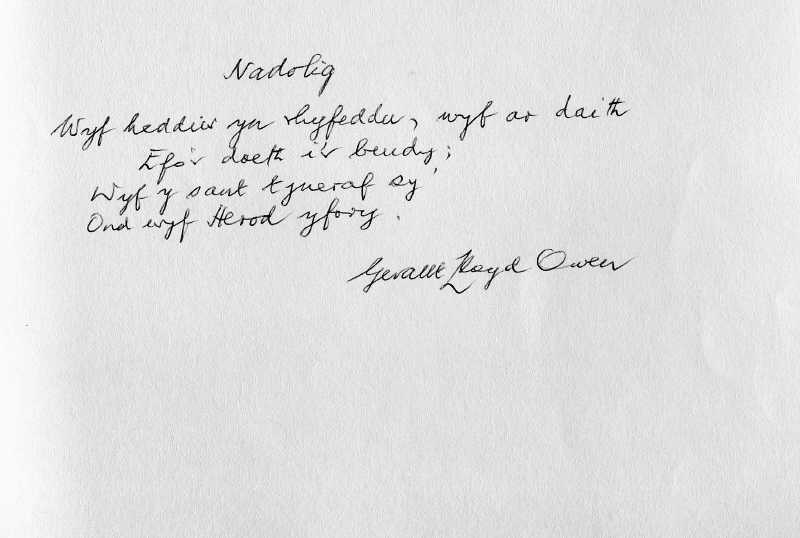 Nadolig
Wyf heddiw yn rhyfeddu, wyf ar daith
Efo'r doeth i'r beudy;
Wyf y sant tyneraf sy'
Ond wyf Herod yfory.
Gerallt Lloyd Owen